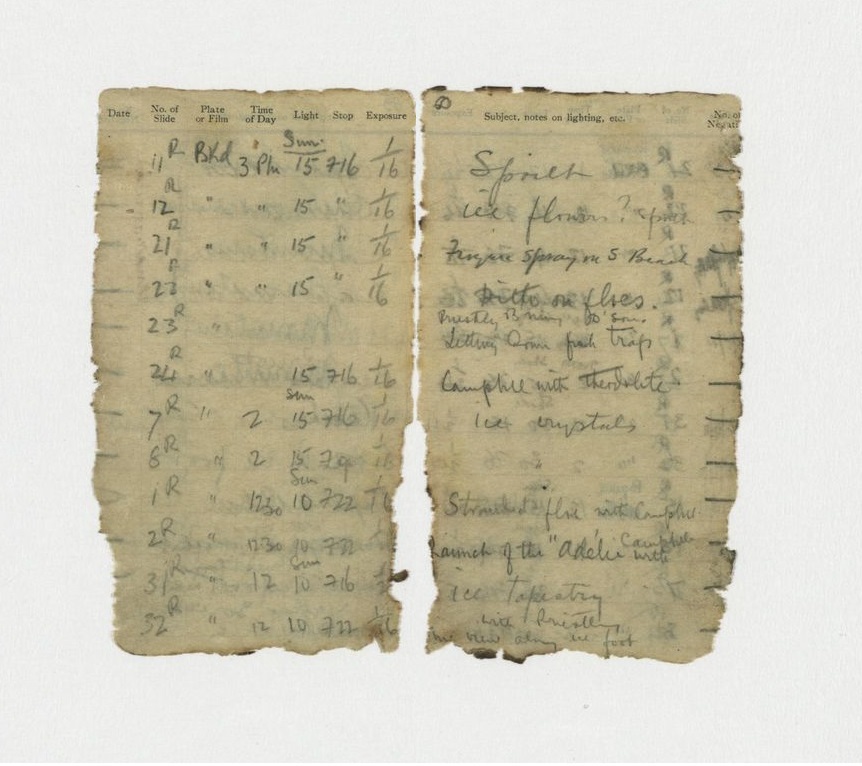 Date No. of Slide Plate or Film Time of Day Light Stop Exposure
Sun.
11 R Bkd 3 Pm 15 716 1/16
12 R " " 15 " 1/16
21 R " " 15 " 1/16
22 R " " 15 " 1/16
23 R "
24 R " 15 716 1/16
Sun
7 R " 2 15 716 1/16
8 R " 2 15
Sun
1 R " 1230 10 722
2 R " 1230 10 722
Sun
31 R " 12 10 716
32 R " 12 10 722 1/16
60
Subject, notes on lighting, etc. No. of
ice flowers?
Spray on S Beach
Ditto on floes.
Priestley
Letting down fish trap
Campbell with theodolite
Ice crystals
Stranded floe with Campbell
Launch of the "Adélie" with Campbell
ice tapestry
with Priestley
view along ice foot